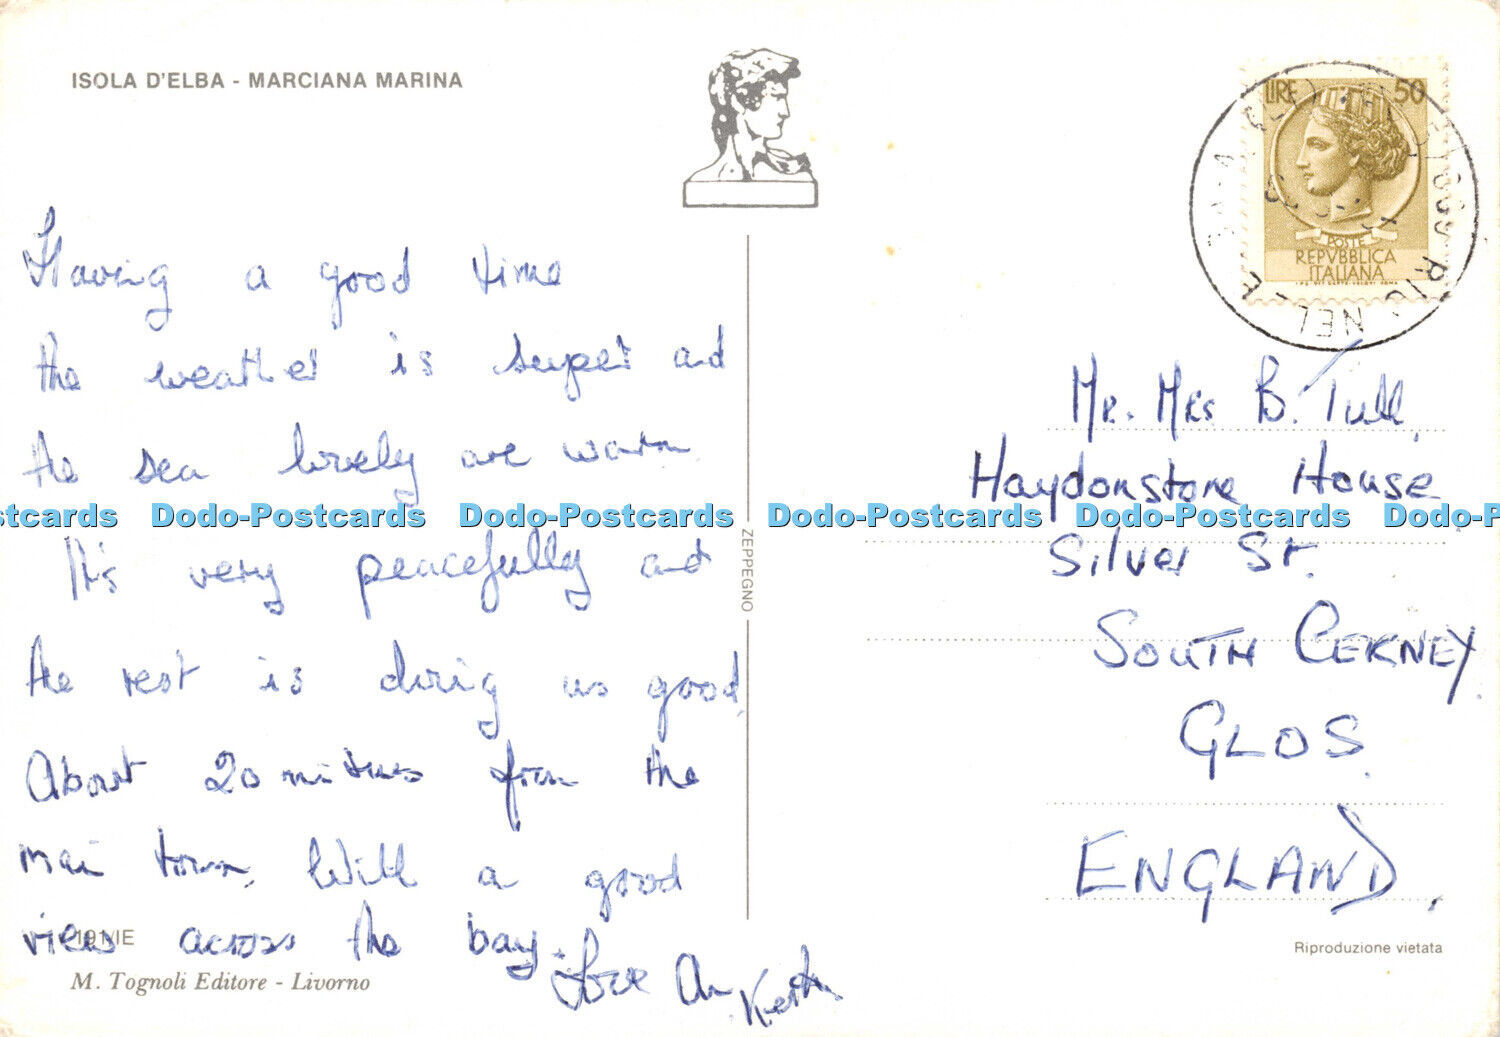 ISOLA D'ELBA - MARCIANA MARINA
Having a good time
the weather is super and
the sea lovely are warm
It's very peacefully and
the rest is doing us good.
About 20 minutes from the
main town. With a good
views across the bay.
Love Ann
191/IE
M. Tognoli Editore - Livorno
ZEPPEGNO
LIRE 50
POSTE
REPVBBLICA
ITALIANA
RIO NELL'E
Mr. Mrs B. Tull,
Haydonstone House
Silver St.
SOUTH CERNEY
GLOS.
ENGLAND.
Riproduzione vietata
Dodo-Postcards Dodo-Postcards Dodo-Postcards Dodo-Postcards